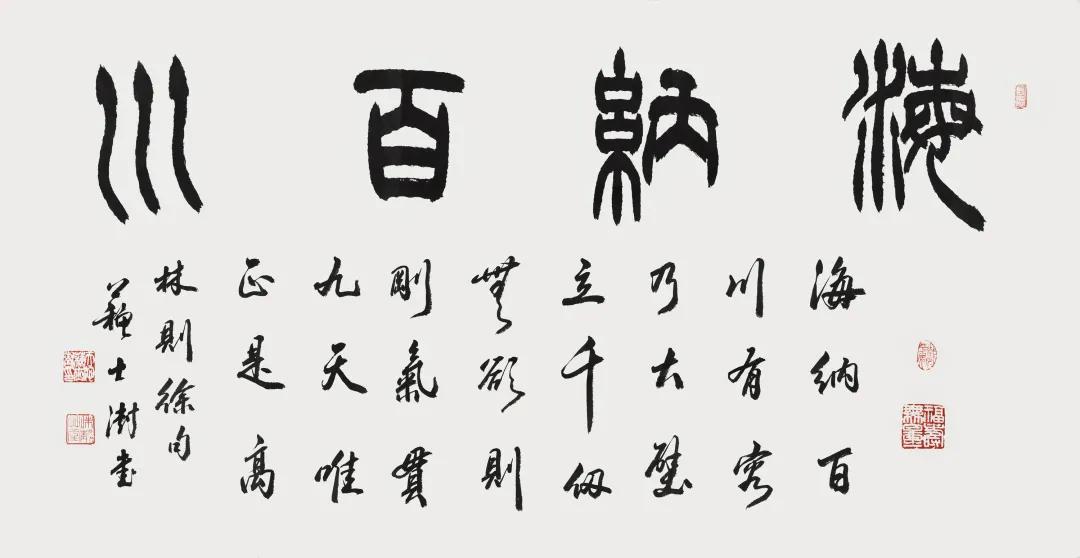 海納百川
海納百
川有容
乃大壁
立千仞
無欲則
剛氣貫
九天唯
正是高
林則徐句
蘇士澍書
福壽無量